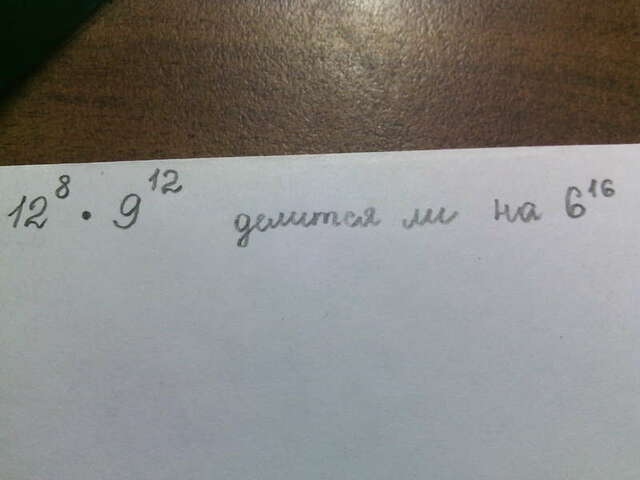 12⁸ · 9¹² делится ли на 6¹⁶